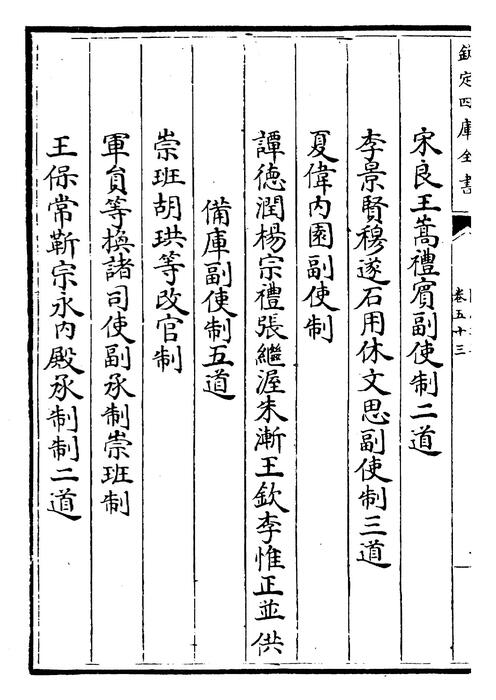 欽定四庫全書
卷五十三
宋良王蒿禮賓副使制二道
李景賢穆遂石用休文思副使制三道
夏偉内園副使制
譚徳潤楊宗禮張繼渥朱漸王欽李惟正並供
備庫副使制五道
崇班胡珙等改官制
軍員等換諸司使副承制崇班制
王保常靳宗永内殿承制制二道